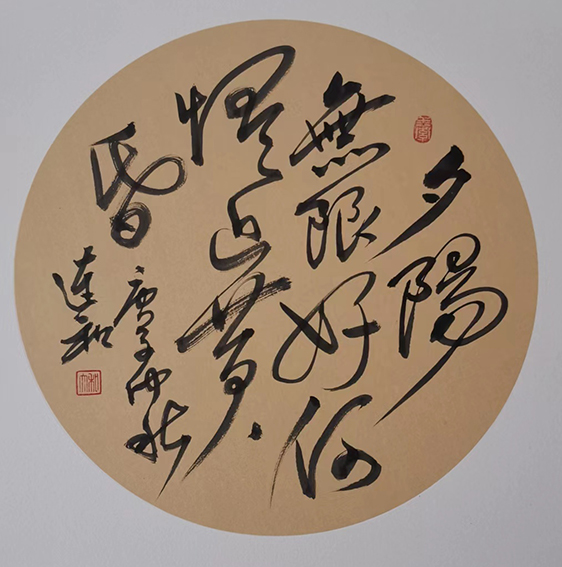 夕陽
無限好何
懼近黄
昏
庚子仲秋
和